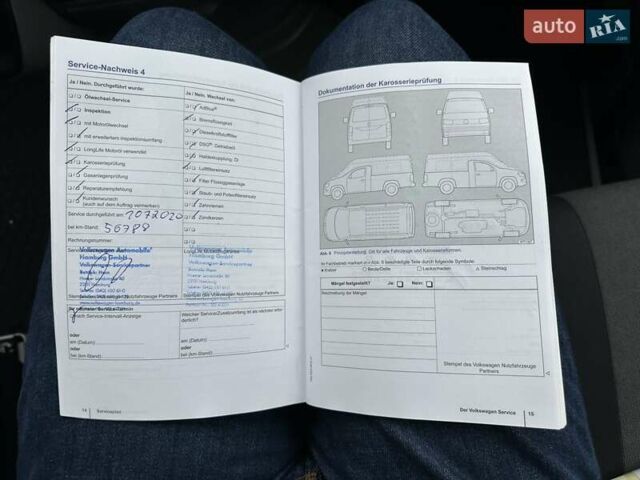 auto RIA.com
Service-Nachweis 4
Ja / Nein. Durchgeführt wurde:
Ölwechsel-Service
Inspektion
mit Motorölwechsel
mit erweitertem Inspektionsumfang
LongLife Motoröl verwendet
Karosserieprüfung
Gasanlagenprüfung
Reparaturempfehlung
Kundenwunsch
(auch auf dem Auftrag vermerken)
Service durchgeführt am:
bei km-Stand: 56788
Rechnungsnummer:
Ja / Nein. Wechsel von:
AdBlue®
Bremsflüssigkeit
Dieselkraftstofffilter
DSG®, Getriebeöl
Haldexkupplung, Öl
Luftfiltereinsatz
Filter Flüssiggasanlage
Staub- und Pollenfiltereinsatz
Zahnriemen
Zündkerzen
Volkswagen Automobile
Hamburg GmbH
Volkswagen-Servicepartner
Stempel des Volkswagen Nutzfahrzeuge Partners
nach Service-Intervall-Anzeige
oder
am (Datum):
oder
bei (km-Stand):
Welcher Service/Zusatzumfang ist als nächster erforderlich?
am (Datum):
bei (km-Stand):
14 Serviceplan
Dokumentation der Karosserieprüfung
Abb. 8 Prinzipdarstellung: Gilt für alle Fahrzeuge und Karosserieformen.
Beule/Delle
Lackschaden
Steinschlag
Mängel festgestellt? Ja: Nein:
Beschreibung der Mängel:
Stempel des Volkswagen Nutzfahrzeuge
Partners
Der Volkswagen Service 15